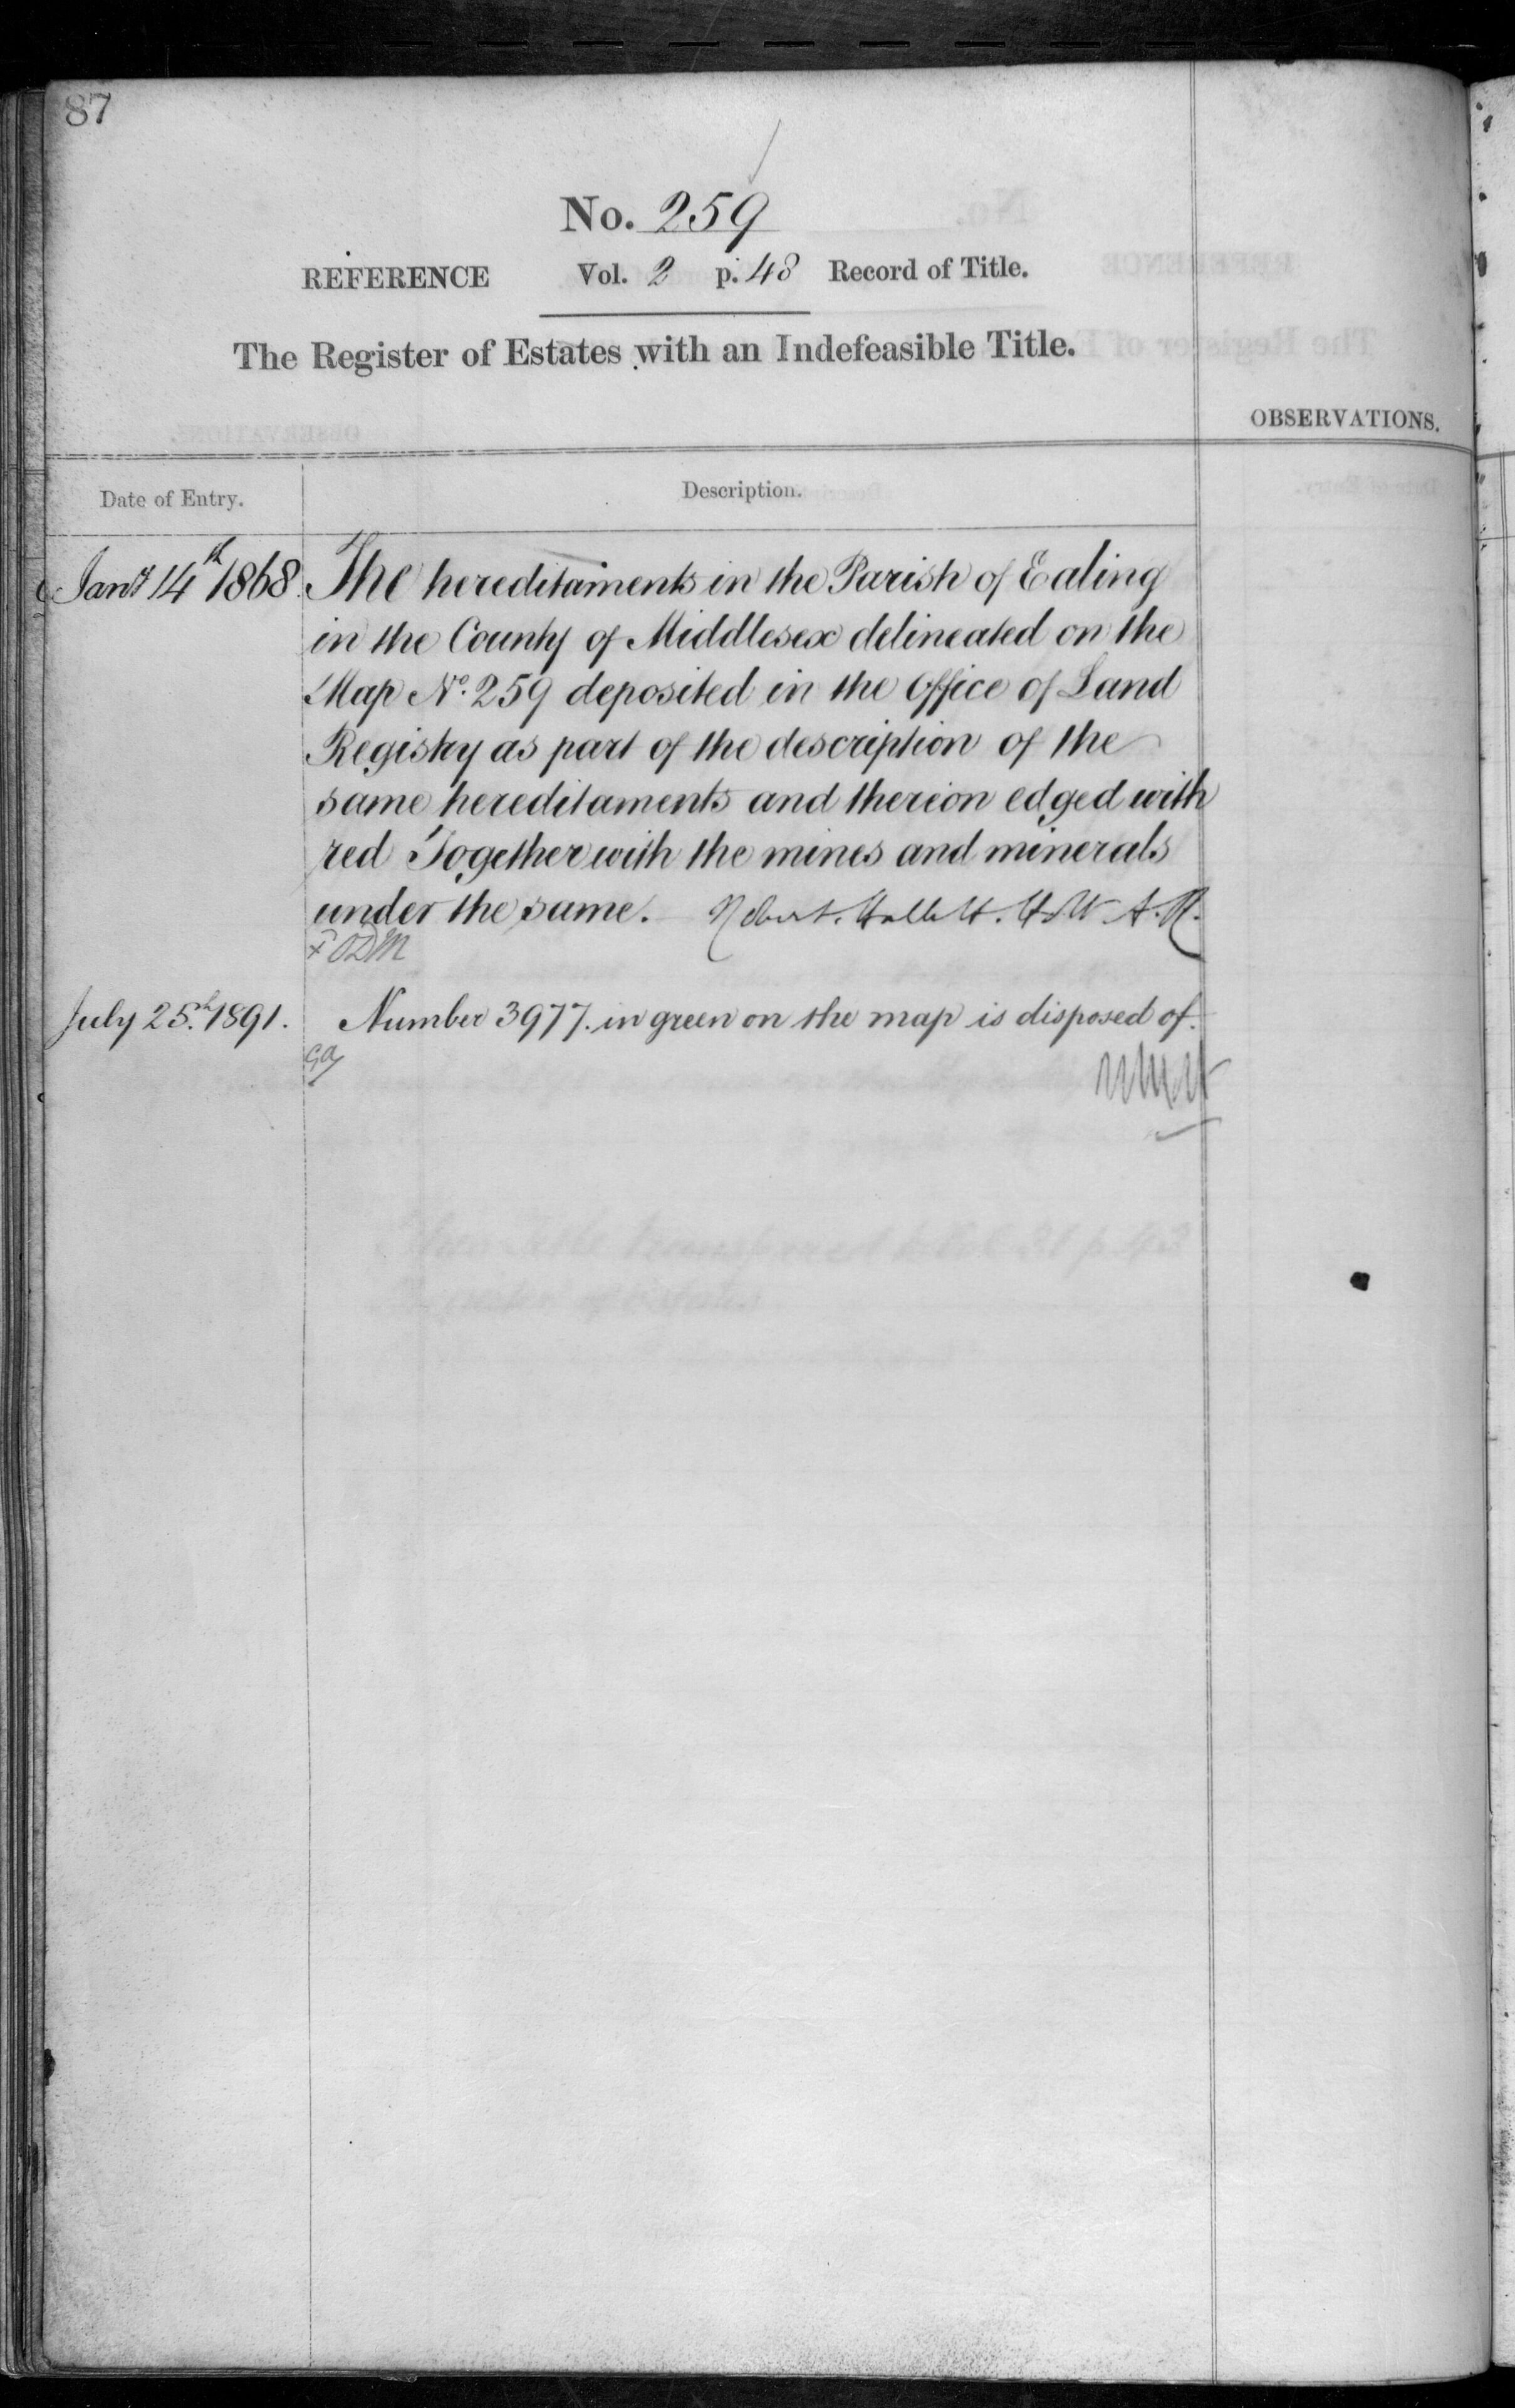 87
No. 259
REFERENCE Vol. 2 p. 48 Record of Title.
The Register of Estates with an Indefeasible Title.
OBSERVATIONS.
Date of Entry. Description.
Jany 14th 1868. The hereditaments in the Parish of Ealing
in the County of Middlesex delineated on the
Map No. 259 deposited in the Office of Land
Registry as part of the description of the
same hereditaments and thereon edged with
red Together with the mines and minerals
under the same. Robert. Hallett. A.R.
July 25th 1891. Number 3977. in green on the map is disposed of.